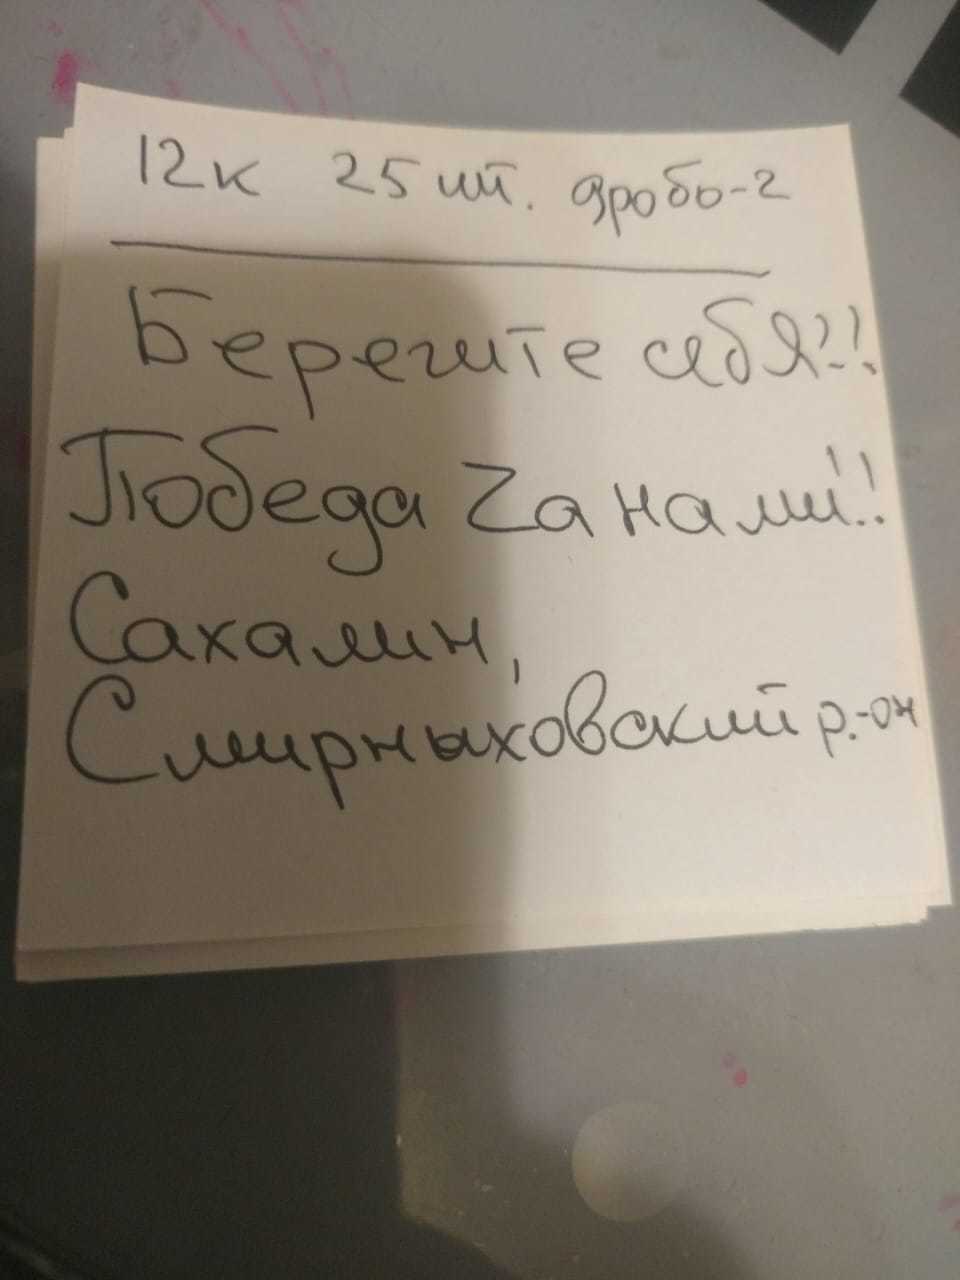 12к 25 шт. дробь-2
Берегите себя!!
Победа Zа нами!!
Сахалин,
Смирныховский р.-он